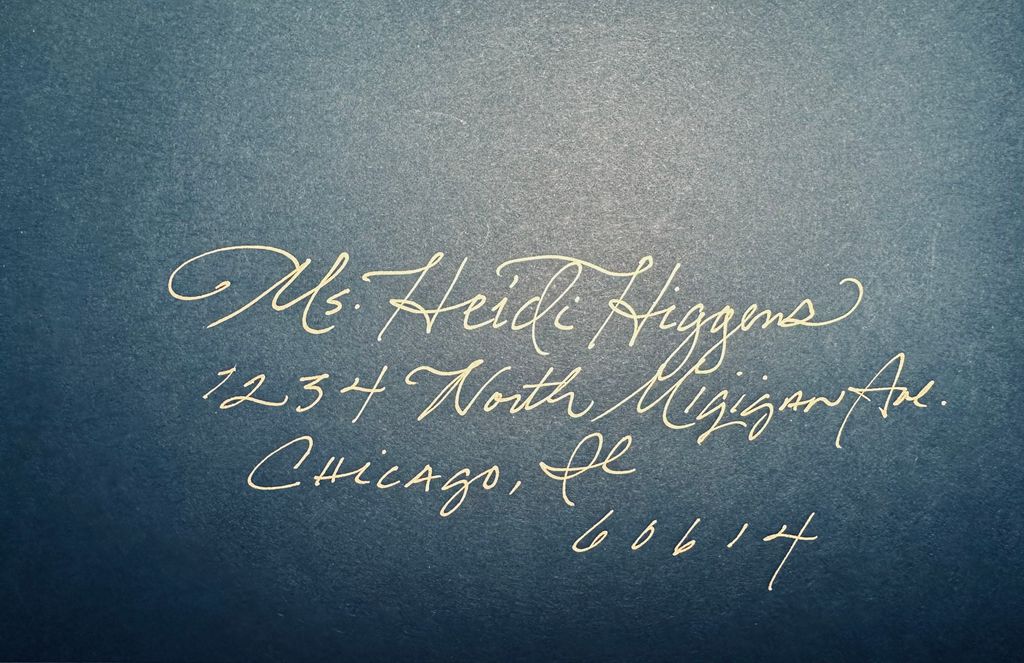 Ms. Heidi Higgens
1234 North Migigan Ave.
Chicago, Il
60614